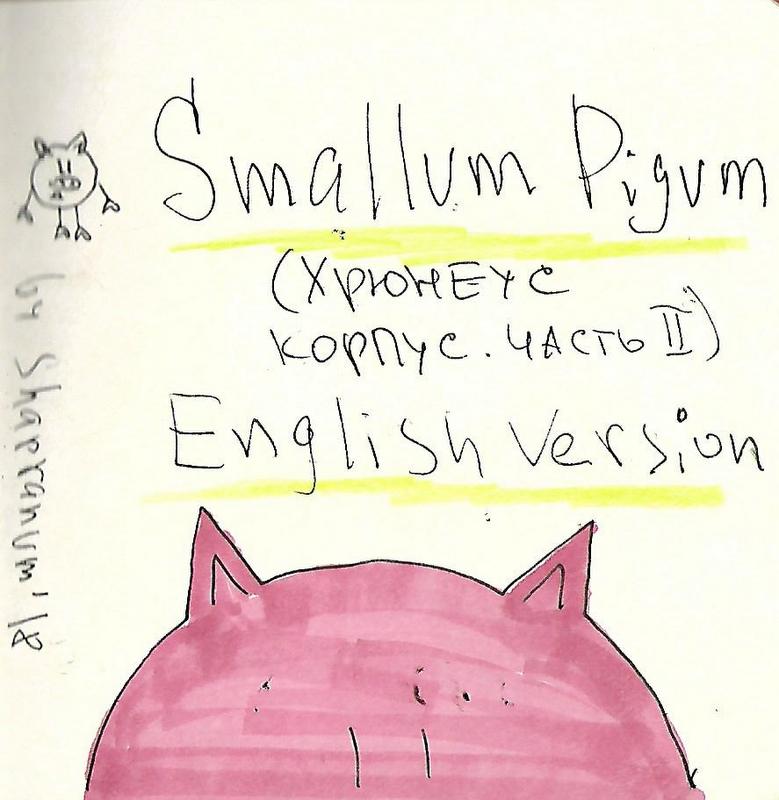 Smallum Pigum
(ХРЮНЕУС
КОРПУС. ЧАСТЬ II)
English version
by Shapranum, 18